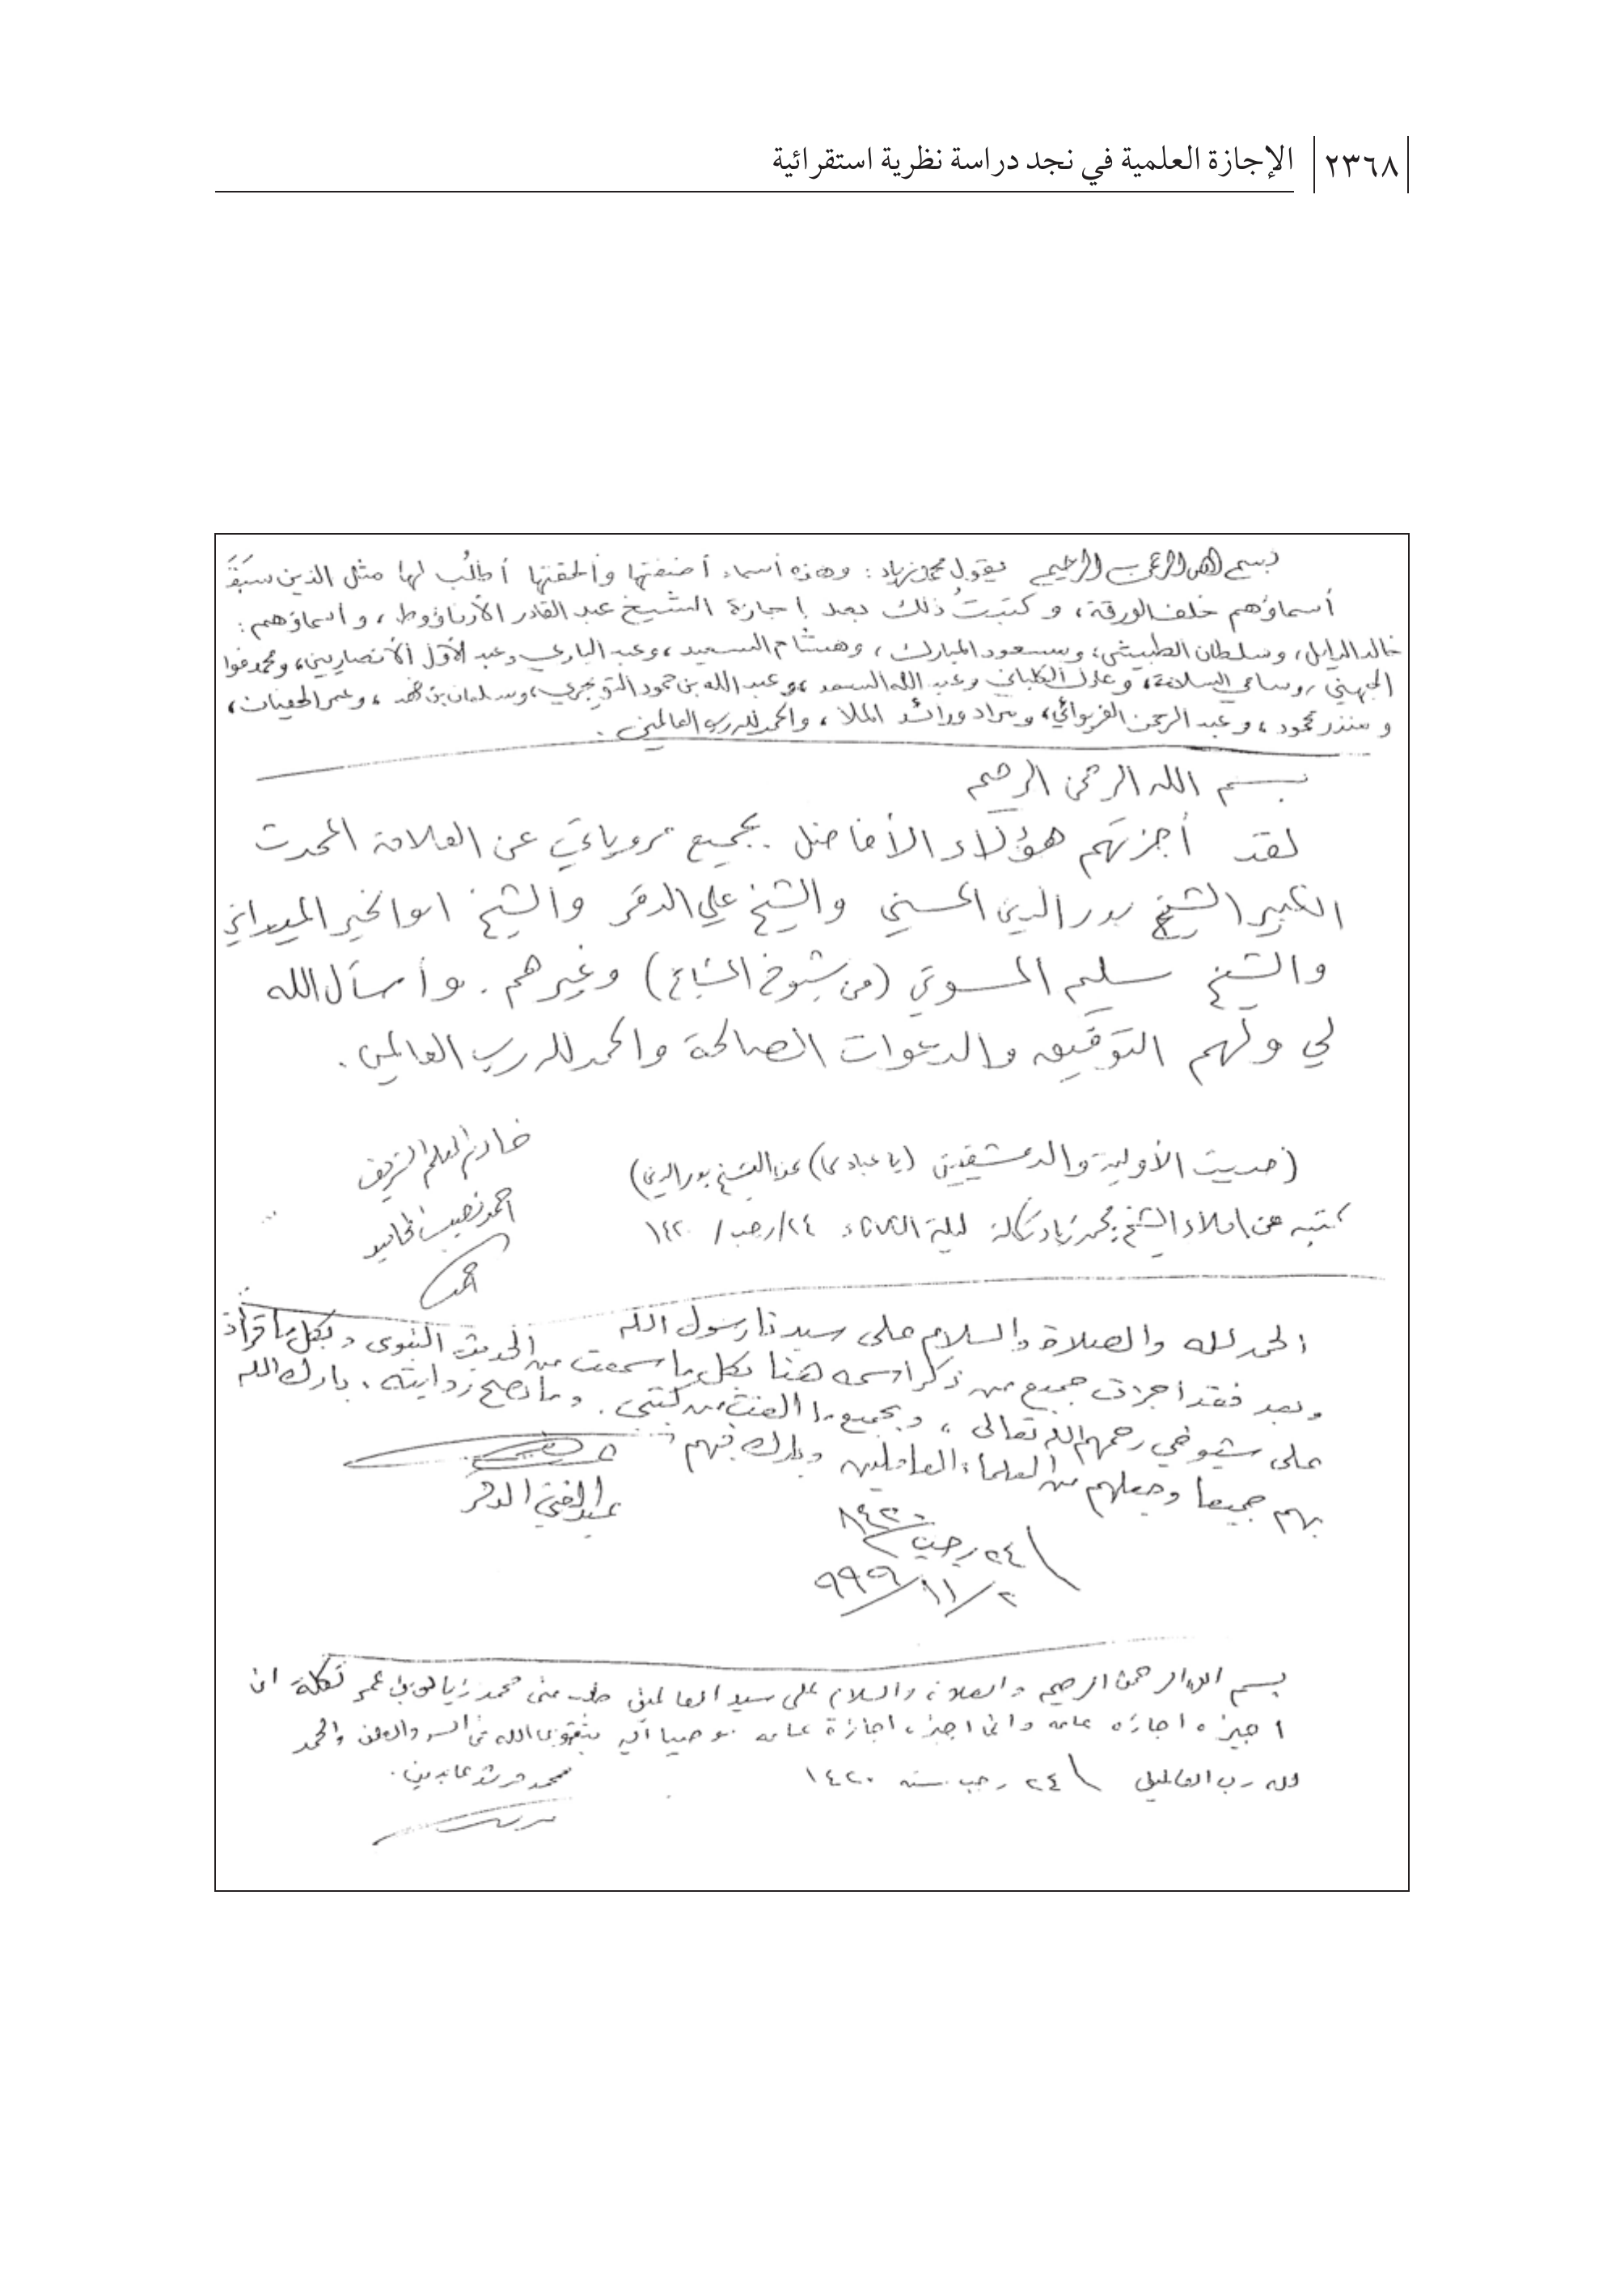 ٢٣٦٨ الإجازة العلمية في نجد دراسة نظرية استقرائية
بسم الله الرحمن الرحيم يقول محمد زياد: وهذه أسماء أضفتها وألحقتها أطلُب لها مثل الذين سبَقَ
أسماؤهم خلف الورقة، وكتبتُ ذلك بعد إجازة الشيخ عبد القادر الأرناؤوط، وأسماؤهم:
خالد الدايل، وسلطان الطبيشي، وسعود المبارك، وهشام السعيد، وعبد الباري وعبد الأول الأنصاريين، ومحمد
الجهني، وسامي السلامة، وعادل الكلباني وعبد الله السعد، وعبد الله بن حمود التويجري، وسلمان بن فهد، وعمر الحفيان،
ومنذر محمود، وعبد الرحمن الفريوائي، ومراد ورائد الملا، والحمد لله رب العالمين.
بسم الله الرحمن الرحيم
لقد أجزتهم هؤلاء الأفاضل بجميع مروياتي عن العلامة المحدث
الكبير الشيخ بدر الدين الحسني والشيخ علي الدقر والشيخ ابو الخير الميداني
والشيخ سليم المسوتي (من شيوخ المشايخ) وغيرهم. وأسأل الله
لي ولهم التوفيق والدعوات الصالحة والحمد لله رب العالمين.
(حديث الأولية والدمشقيين (يا عبادي) عن الشيخ بدر الدين)
خادم العلم الشريف
كتبه عن املاء الشيخ: محمد زياد تكلة ليلة الثلاثاء ٢٤/رجب/١٤٢٠
احمد نصيب المحاميد
احمد
الحمد لله والصلاة والسلام على سيدنا رسول الله
وبعد فقد اجزت جميع من ذكر اسمه هنا بكل ما سمعت من الحديث النبوي وبكل ما قرأت
على شيوخي رحمهم الله تعالى، وبجميع ما الفت من كتبي. وما تصح روايته. بارك الله
بهم جميعا وجعلهم من العلماء العاملين وبارك فيهم
عبد الغني الدقر
٢٤ رجب ١٤٢٠
٢/١١/٩٩٩
بسم الله الرحمن الرحيم والصلاة والسلام على سيد العالمين طلب مني محمد زياد بن عمر تكلة ان
اجيزه اجازه عامه واني اجيزه اجازة عامه موصيا اليه بتقوى الله في السر والعلن والحمد
لله رب العالمين ٢٤ رجب سنه ١٤٢٠
محمد مرشد عابدين.